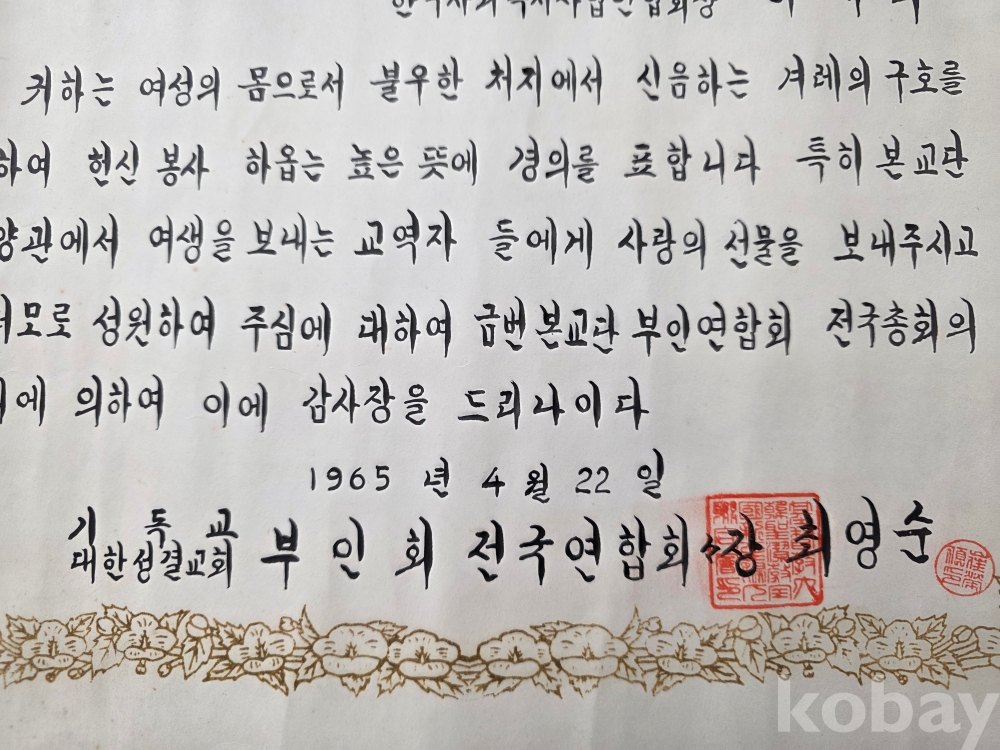 한국사회복지사업연합회장
귀하는 여성의 몸으로서 불우한 처지에서 신음하는 겨레의 구호를
하여 헌신 봉사 하옵는 높은 뜻에 경의를 표합니다 특히 본 교단
양관에서 여생을 보내는 교역자 들에게 사랑의 선물을 보내주시고
모로 성원하여 주심에 대하여 금번 본교단 부인연합회 전국총회의
에 의하여 이에 감사장을 드리나이다
1965 년 4 월 22 일
기독교
대한성결교회 부인회 전국연합회장 최영순
kobay